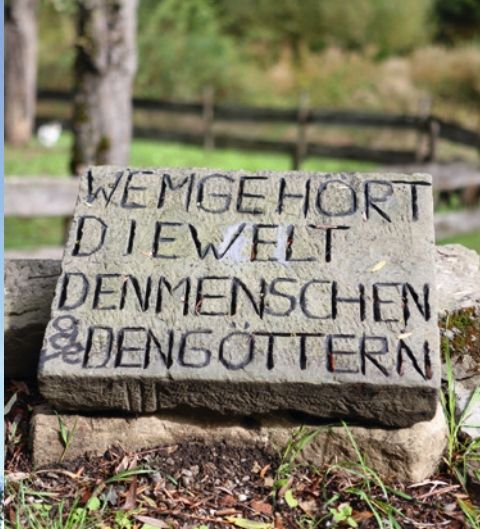 WEMGEHÖRT
DIEWELT
DENMENSCHEN
DENGÖTTERN